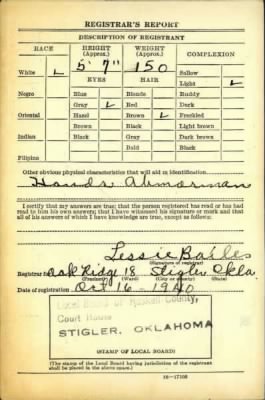 REGISTRAR'S REPORT
DESCRIPTION OF REGISTRANT
RACE HEIGHT (Approx.) WEIGHT (Approx.) COMPLEXION
5' 7" 150
White Sallow
EYES HAIR Light
Negro Blue Blonde Ruddy
Gray Red Dark
Oriental Hazel Brown Freckled
Brown Black Light brown
Indian Black Gray Dark brown
Bald Black
Filipino
Other obvious physical characteristics that will aid in identification
Hands
I certify that my answers are true; that the person registered has read or has had read to him his own answers; that I have witnessed his signature or mark and that all of his answers of which I have knowledge are true, except as follows:
Lessie Bailes
(Signature of registrar)
Registrar for Oak Ridge 18 Stigler Okla.
(Ward) (City or county) (State)
Date of registration Oct 16 - 1940
Local Board of Haskell County,
Court House
STIGLER, OKLAHOMA
(STAMP OF LOCAL BOARD)
(The stamp of the Local Board having jurisdiction of the registrant shall be placed in the above space.)